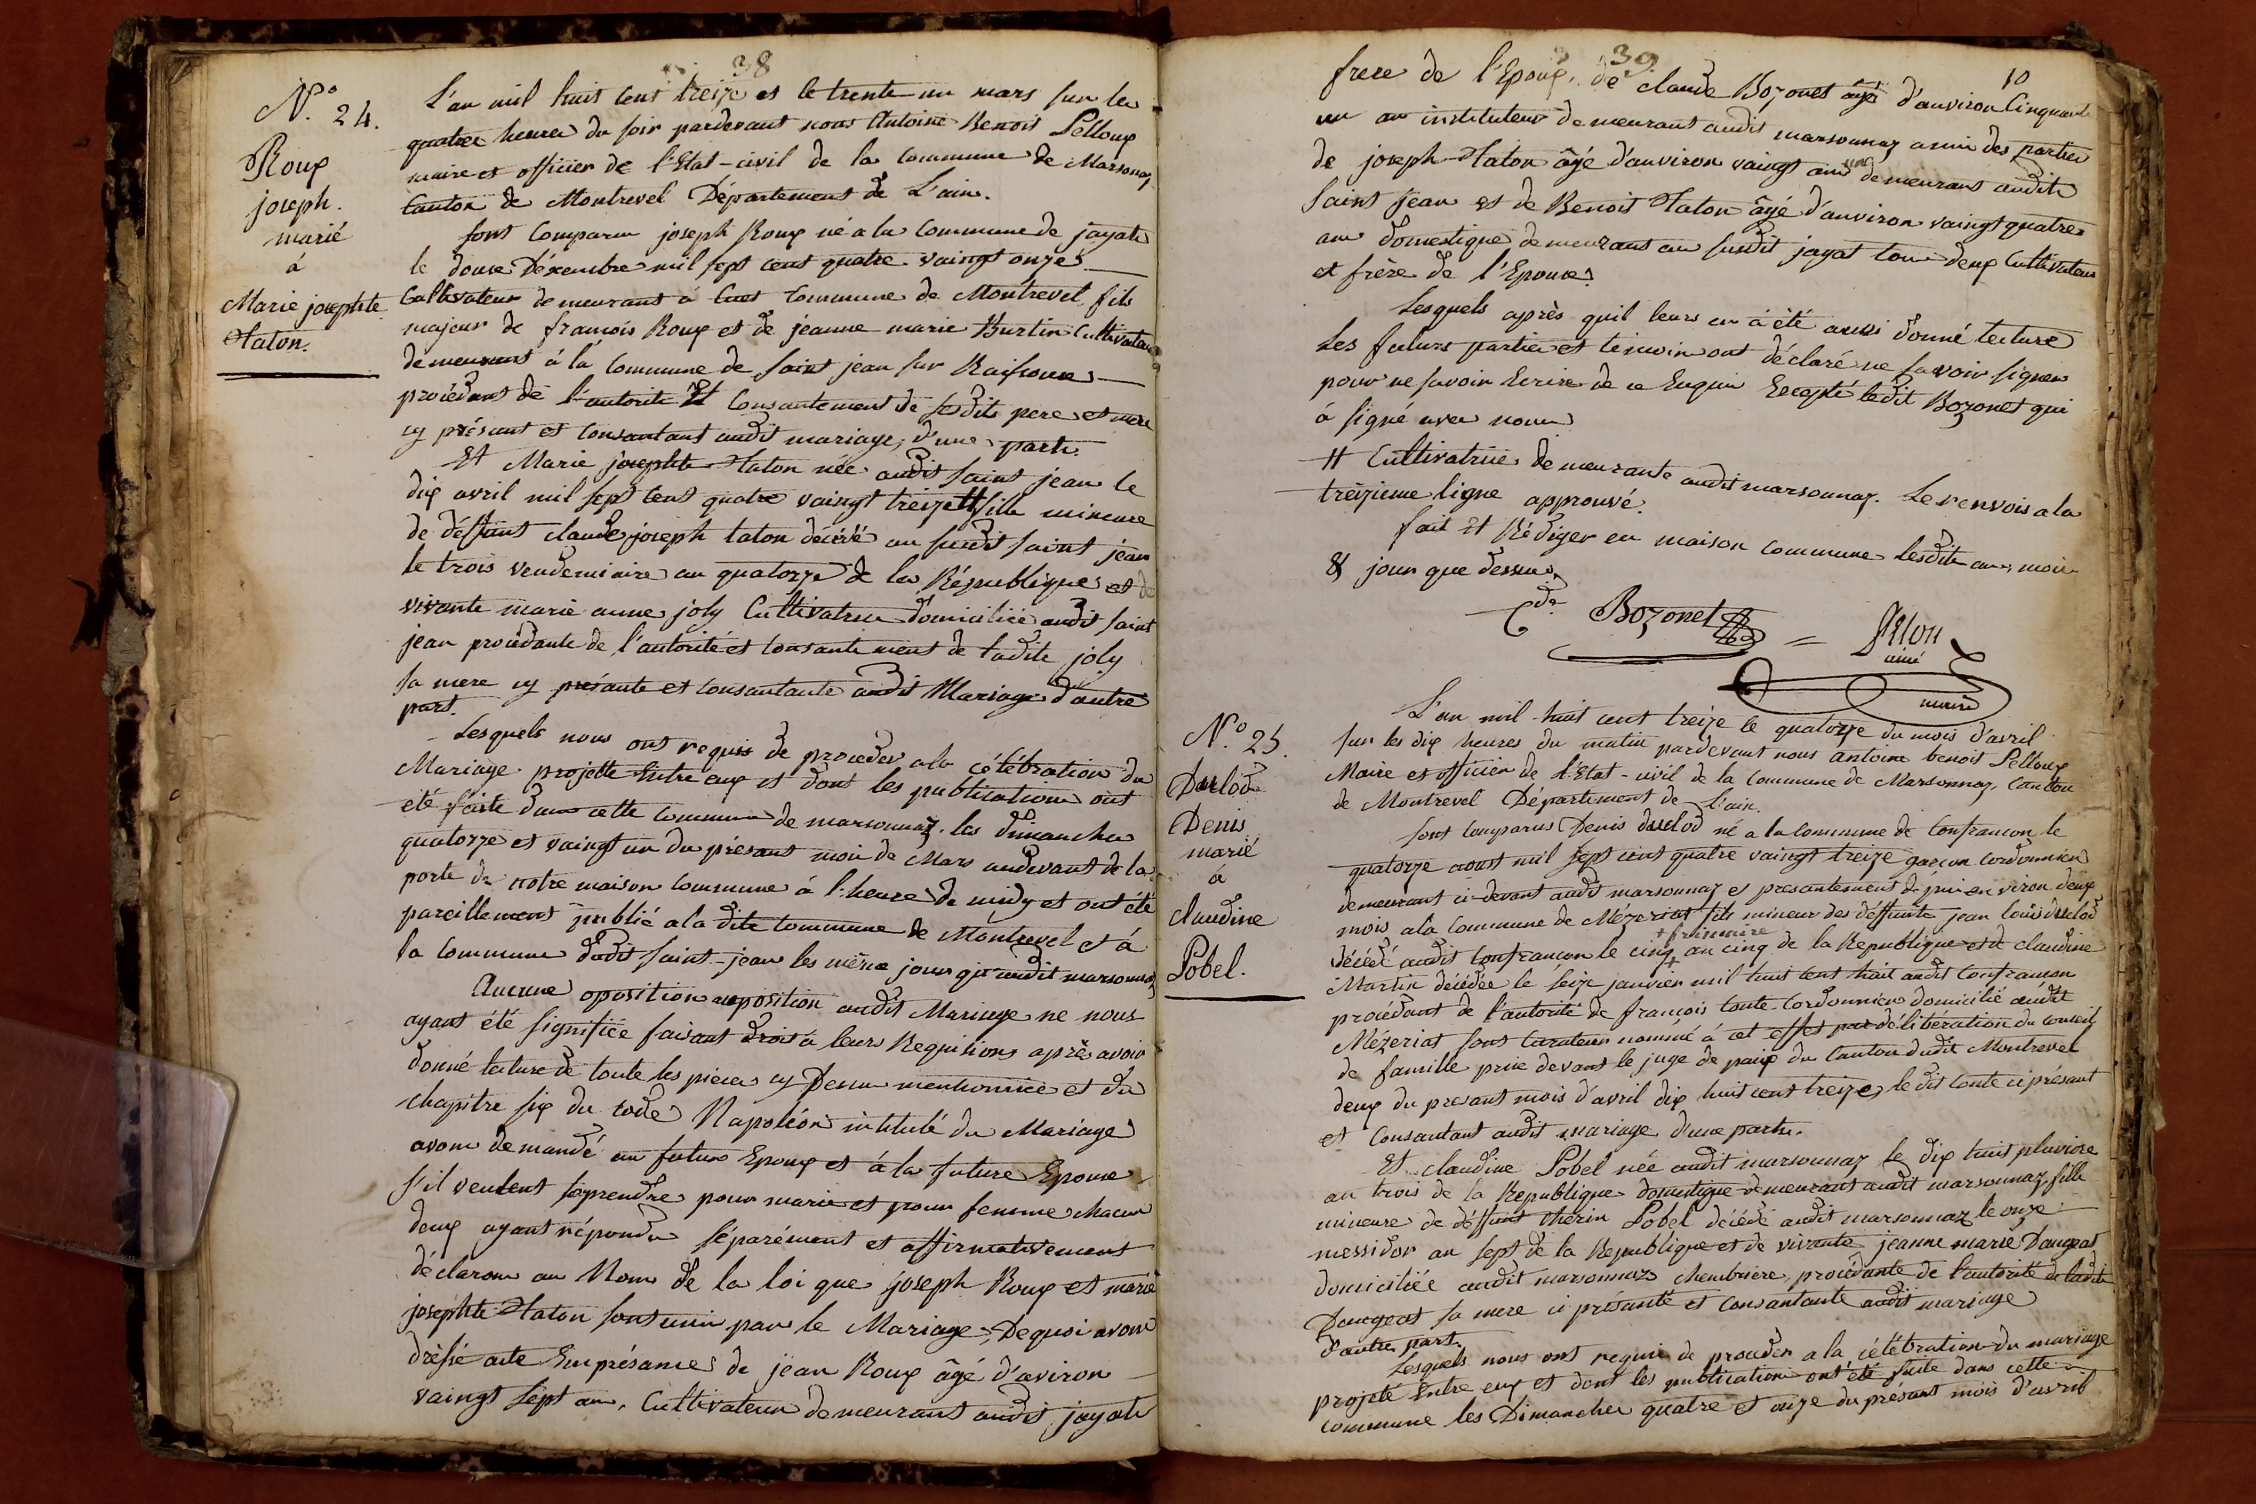 38
N.° 24.
Roux
joseph.
marié
á
Marie josephte
Taton.
L'an mil huit cent treize et le trente un mars sur les
quatre heures du soir pardevant nous Antoine Benoit Pelloux
maire et officier de l'Etat-civil de la commune de Marsonaz
Canton de Montrevel Département de L'ain.
sont Comparu joseph Roux né a la Commune de jayate
le douse Décembre mil sept cent quatre vaingt onze
Cultivateur demeurant á Cuet Commune de Montrevel fils
majeur de francois Roux et de jeanne marie Burtin Cultivateurs
demeurant á la Commune de saint jean sur Raissouse
procédant de l'autorité Et Consantement de sesdits pere et mere
cy présant et Consantant audit mariage, d'une part.
Et Marie josephte Taton née audit saint jean le
dix avril mil sept cent quatre vaingt treize # fille mineure
de deffunt claude joseph taton décédé au susdit saint jean
le trois vendemiaire an quatorze de la République et de
vivante marie anne joly Cultivatrice domiciliée audit saint
jean procédante de l'autorité et Consantement de ladite joly
sa mere cy présante et Consantante audit Mariage d'autre
part.
Lesquels nous ont requis de proceder a la célébration du
Mariage projetté Entre eux et dont les publications ont
été faite dans cette commune de marsonnaz, les dimanches
quatorze et vaingt un du présant mois de Mars audevant de la
porte de notre maison Commune á l'heure de midy et ont été
pareillement publié a la dite Commune de Montrevel et á
la Commune dudit saint-jean les même jours qu'audit marsonnaz
Aucune oposition audit Mariage ne nous
ayant été signifiée faisant droit á leurs Requisions après avoir
donné lecture de toute les pieces cy Dessus mentionnée et du
chapitre six du code Napoléon intitulé du Mariage
avons demandé au futur Epoux et á la future Epouse
s'il veulent seprendre pour marie et pour femme chacun
deux ayant répondu séparément et affirmativement
déclarons au Nom de la loi que joseph Roux et marie
josephte Taton sont unis par le Mariage, Dequoi avons
dréssé acte Enprésance de jean Roux âgé d'aviron
vaingt sept ans, Cultivateur demeurant audit jayate
39
10
frere de l'Epoux, de claude Bozonet âgé d'auviron Cinquante
un an instituteur demeurant audit marsonnaz amis des parties
de joseph Taton âgé d'auviron vaingt ans demeurant audite
saint jean et de Benoit Taton âgé d'auviron vaingt quatre
ans domestique demeurant au susdit jayat tous deux Cultivateurs
et frère de l'Epouse.
Lesquels après quil leurs en á été aussi donné lecture
Les futurs parties et temoin ont déclaré ne savoir signer
pour ne savoir Ecrire de ce Enquis Excepté ledit Bozonet qui
á signé avec nous
# Cultivatrice demeurante audit marsonnaz. Le renvois a la
treizieme ligne approuvé.
fait Et Rédiger en maison commune lesdits an, mois
& jour que dessus
Cde Bozonet = Pelou
ainé
maire
N.° 25.
Duclod
Denis
marié
a
claudine
Pobel.
L'an mil huit cent treize le quatorze du mois d'avril
sur les dix heures du matin pardevant nous antoine benoit Pelloux
Maire et officier de l'Etat-civil de la commune de Marsonnaz, Canton
de Montrevel Département de L'ain.
sont Comparus Denis duclod né a la Commune de Confrancon le
quatorze aoust mil sept cent quatre vaingt treize garçon Cordonnier
demeurant ci-devant audit marsonnaz et presantement depuis environ deux
mois a la Commune de Mézeriat fils mineur des deffunts jean louis duclod
+ frimaire
décédé audit Confrancon le cinq + an cinq de la Republique et de claudine
Martin décédée le seize janvier mil huit cent huit audit Confrancon
procédant de l'autorité de françois Conte Cordonnier domicilié audit
Mézeriat sont Curateur nommé á cet effet par délibération du Conseil
de famille prise devant le juge de paix du Canton dudit Montrevel
deux du presant mois d'avril dix huit cent treize, le dit Conte ci présant
et Consantant audit mariage d'une part.
Et claudine Pobel née audit marsonnaz le dix huit pluviose
an trois de la Republique domestique demeurant audit marsonnaz, fille
mineure de déffunt thérin Pobel décédé audit marsonnaz le onze
messidor an sept de la Republique et de vivante jeanne marie Daugeat
domiciliée audit marsonnaz chembriere, procédante de l'autorité de ladite
Daugeat sa mere ci présante et consantante audit mariage
d'autre part.
Lesquels nous ont requis de proceder a la célébration du mariage
projeté Entre eux et dont les publication ont été faite dans cette
commune les Dimanches quatre et onze du présant mois d'avril